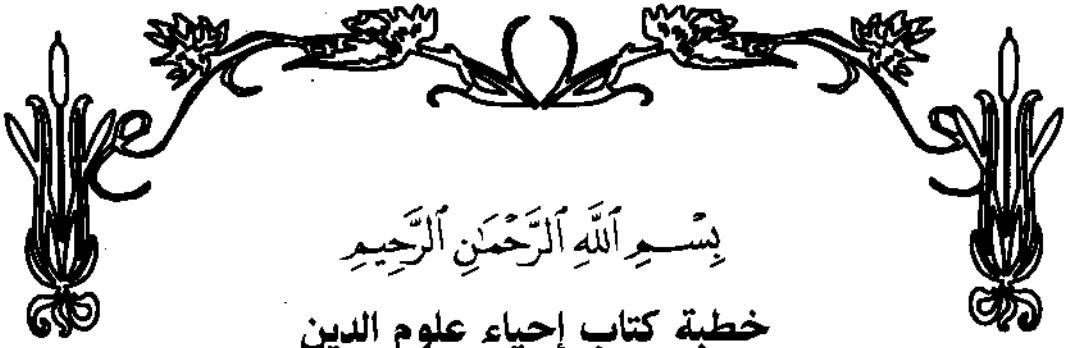 بِسْــمِ ٱللَّهِ ٱلرَّحْمَٰنِ ٱلرَّحِيمِ
خطبة كتاب إحياء علوم الدين